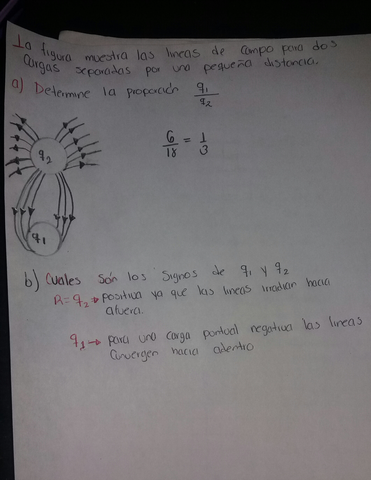 La figura muestra las lineas de campo para dos
Cargas separadas por una pequeña distancia.
a) Determine la proporción q1/q2
q2
6/18 = 1/3
q1
b) Cuales són los signos de q1 y q2
R= q2 → positiva ya que las lineas irradian hacia
afuera.
q1 → para una carga puntual negativa las lineas
convergen hacia adentro